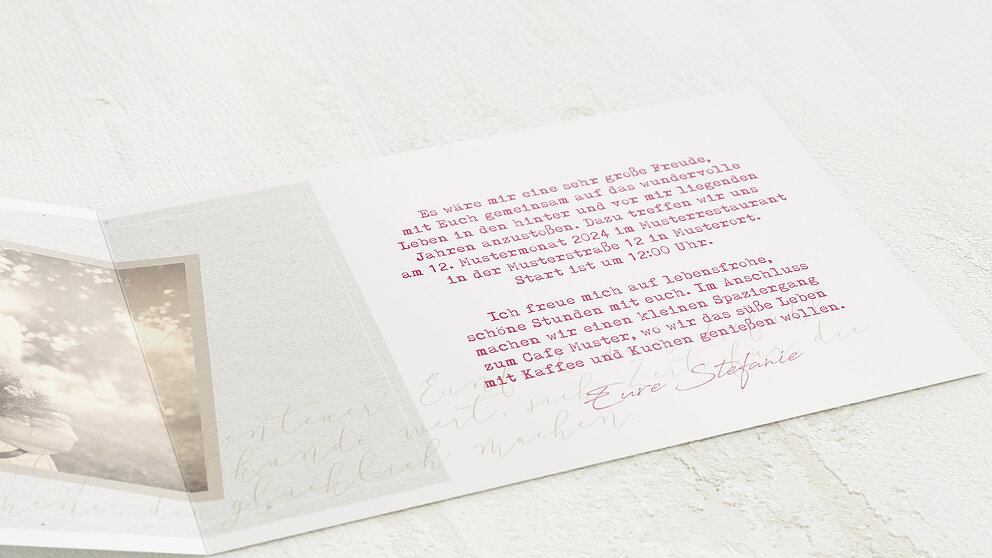 Es wäre mir eine sehr große Freude,
mit Euch gemeinsam auf das wundervolle
Leben in den hinter und vor mir liegenden
Jahren anzustoßen. Dazu treffen wir uns
am 12. Mustermonat 2024 im Musterrestaurant
in der Musterstraße 12 in Musterort.
Start ist um 12:00 Uhr.
Ich freue mich auf lebensfrohe,
schöne Stunden mit euch. Im Anschluss
machen wir einen kleinen Spaziergang
zum Cafe Muster, wo wir das süße Leben
mit Kaffee und Kuchen genießen wollen.
Eure Stefanie
die
wert, sich Zeit für
glücklich machen.